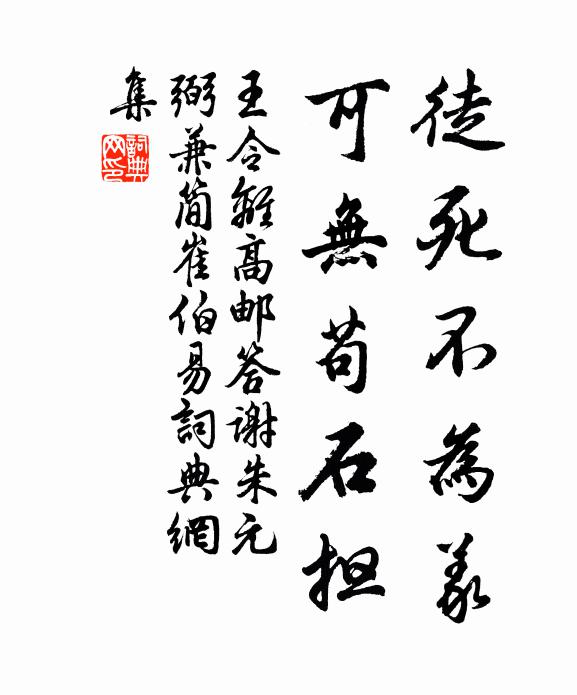 徒死不為義
可無苟石担
王令離高邮答谢朱元
弼兼简崔伯易詞典網
集
詞典网印